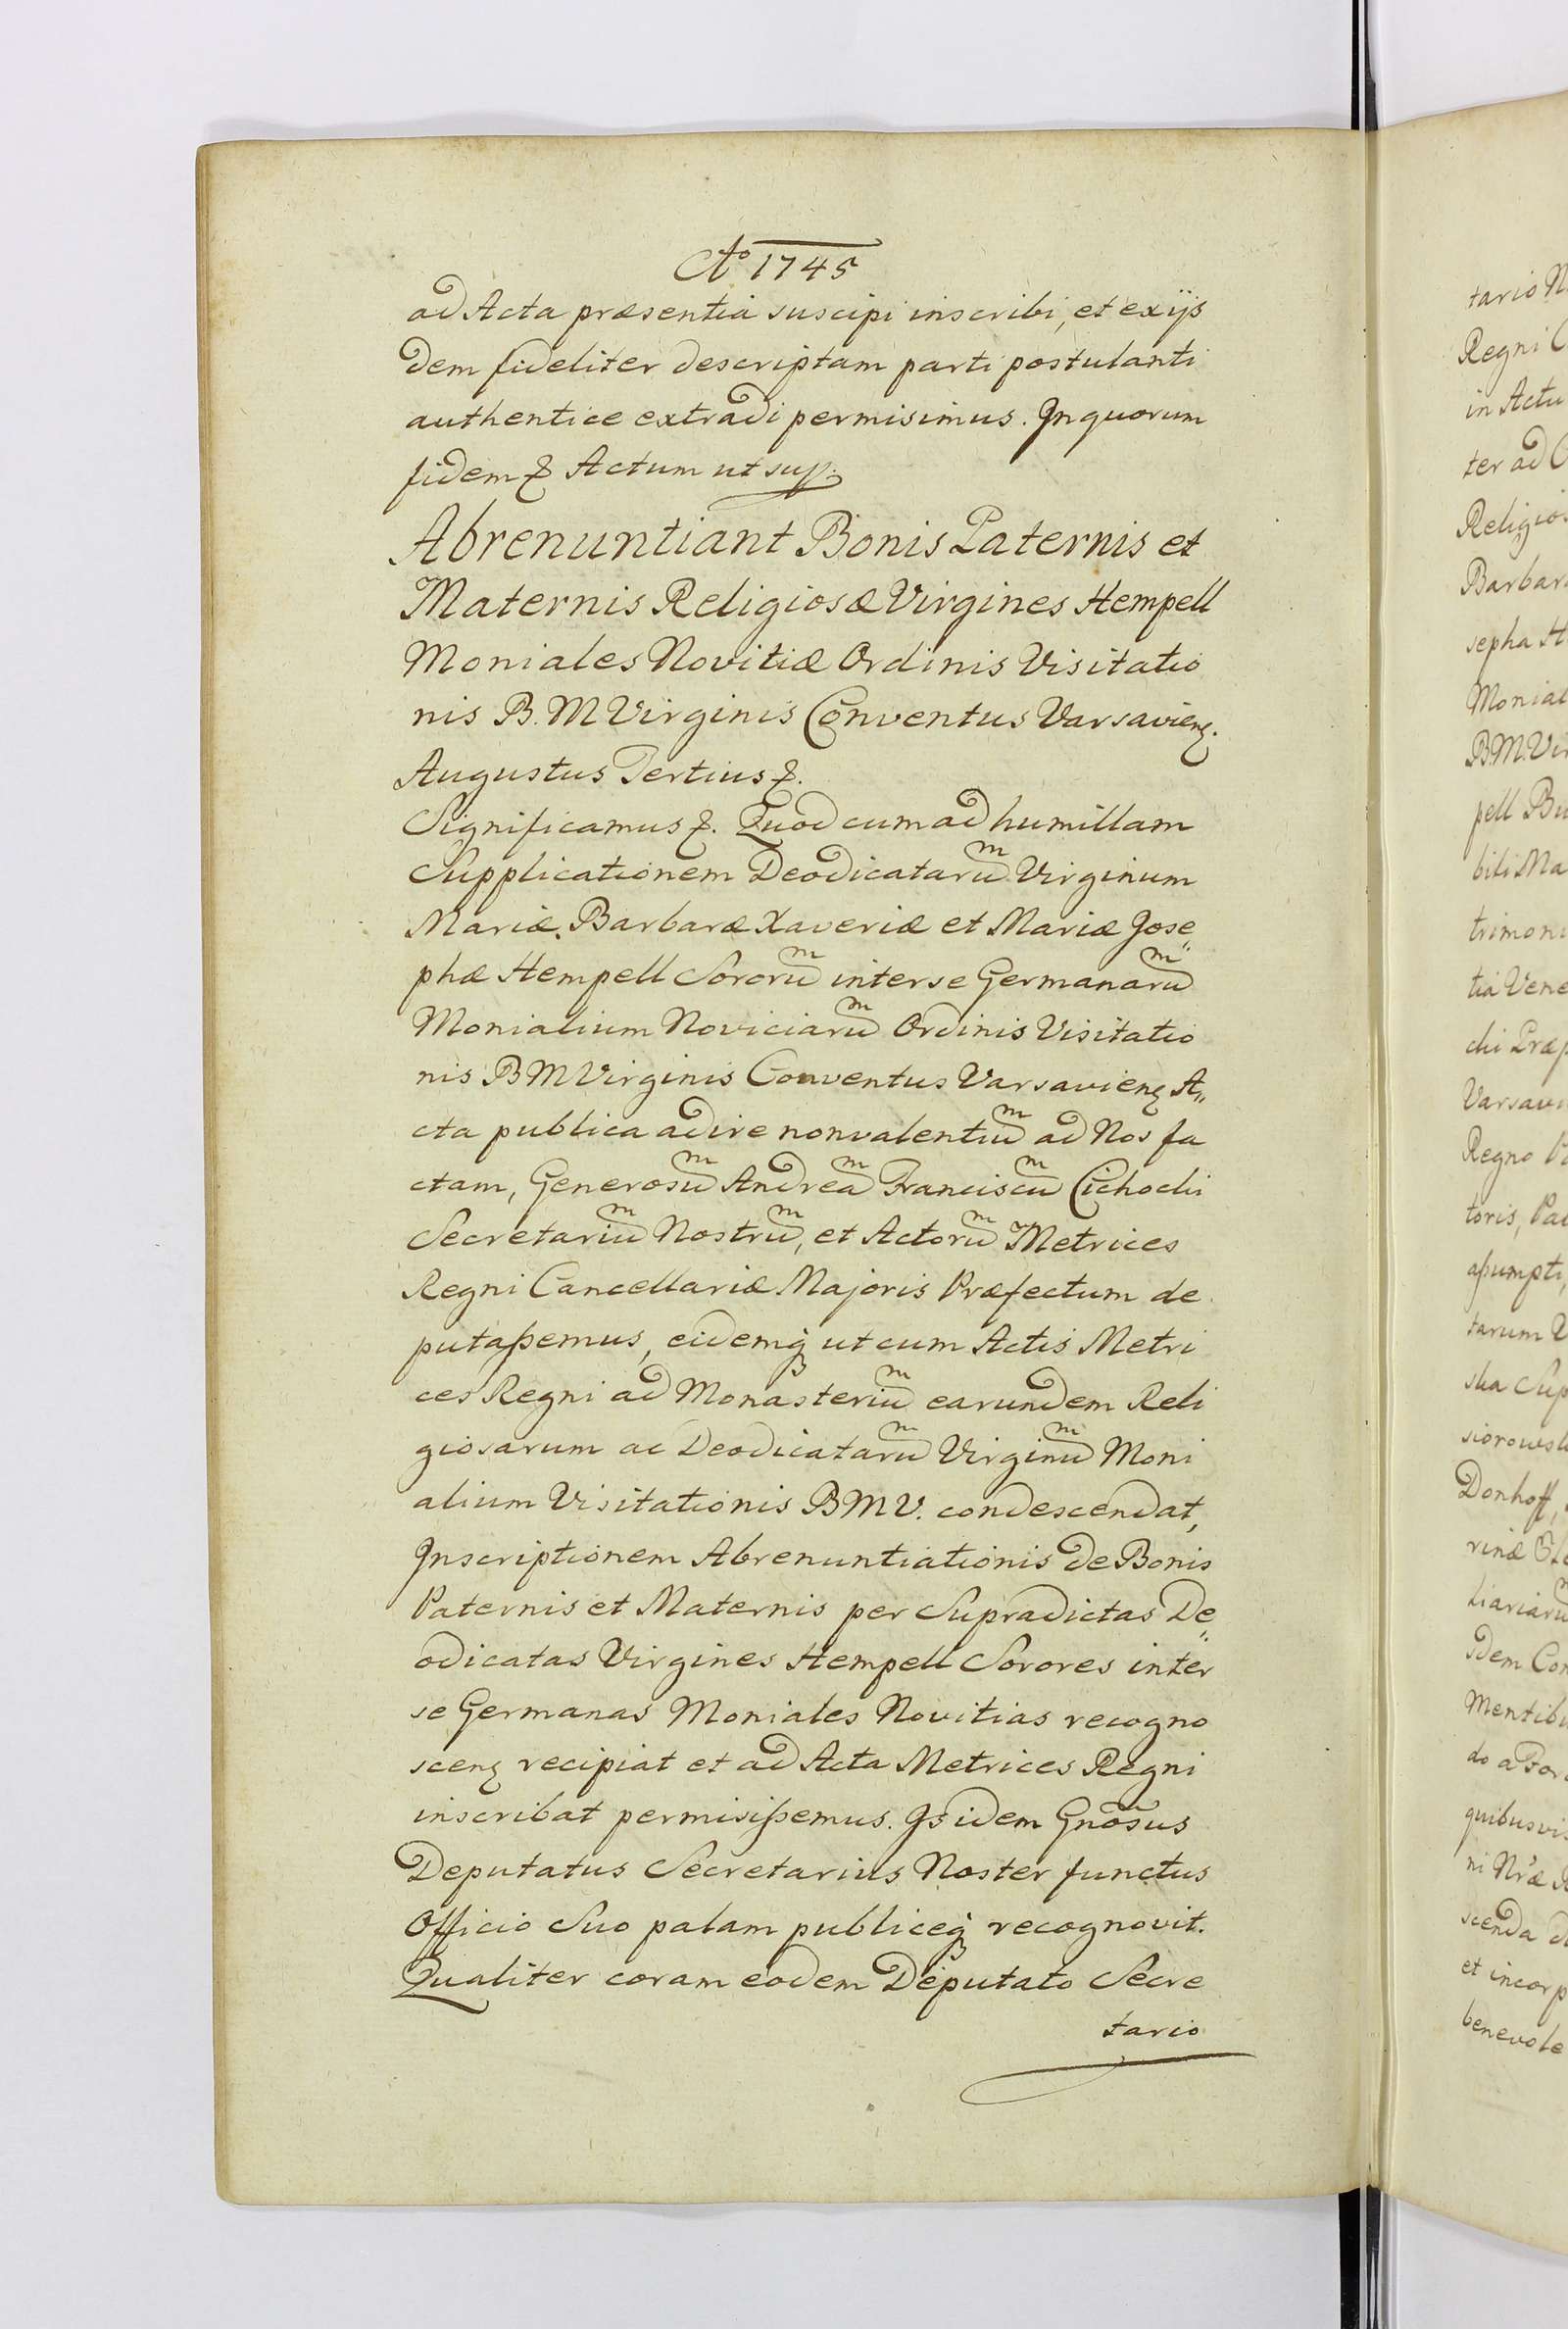 Aº 1745
ad Acta præsentia suscipi inscribi, et exijs
dem fideliter descriptam parti postulanti
authentice extradi permisimus. In quorum
fidem & Actum ut sup.
Abrenuntiant Bonis Paternis et
Maternis Religiosæ Virgines Hempell
Moniales Novitiæ Ordinis Visitatio
nis B. M Virginis Conventus Varsavien̄.
Augustus Tertius &.
Significamus &. Quod cum ad humillam
Supplicationem Deodicatarum̄ Virginum
Mariæ, Barbaræ Xaveriæ et Mariæ Jose„
phæ Hempell Sororum̄ interse Germanarum̄
Monialium Noviciarum̄ Ordinis Visitatio
nis B M Virginis Conventus Varsavien̄ A„
cta publica adire nonvalentium̄ ad Nos fa
ctam, Generosum̄ Andream̄ Franciscum̄ Cichocki
Secretarium̄ Nostrum̄, et Actorum̄ Metrices
Regni Cancellariæ Majoris Præfectum de
putaßemus, eidemq̀ ut cum Actis Metri
ces Regni ad Monasterium̄ earundem Reli
giosarum ac Deodicatarum̄ Virginum̄ Moni
alium Visitationis B M V. condescendat,
Inscriptionem Abrenuntiationis de Bonis
Paternis et Maternis per Supradictas De„
odicatas Virgines Hempell Sorores inter
se Germanas Moniales Novitias recogno
scen̄ recipiat et ad Acta Metrices Regni
inscribat permisißemus. Is idem Gnõsus
Deputatus Secretarius Noster functus
Officio Suo palam publiceq̀ recognovit.
Qualiter coram eodem Deputato Secre
tario
tario N
Regni C
in Actu
ter ad C
Religios
Barbar
sepha H
Monial
B.M. Vir
pell Bu
bili Ma
trimoni
tia Vene
chi Præp
Varsavi
Regno P
toris, Pat
aßumpti,
tarum V
ska Sup
siorowsk
Donhoff,
rinæ
liariarum̄
dem Con
Mentibu
do a For
quibusvis
ni Nræ R
scenda d
et incorp
benevole